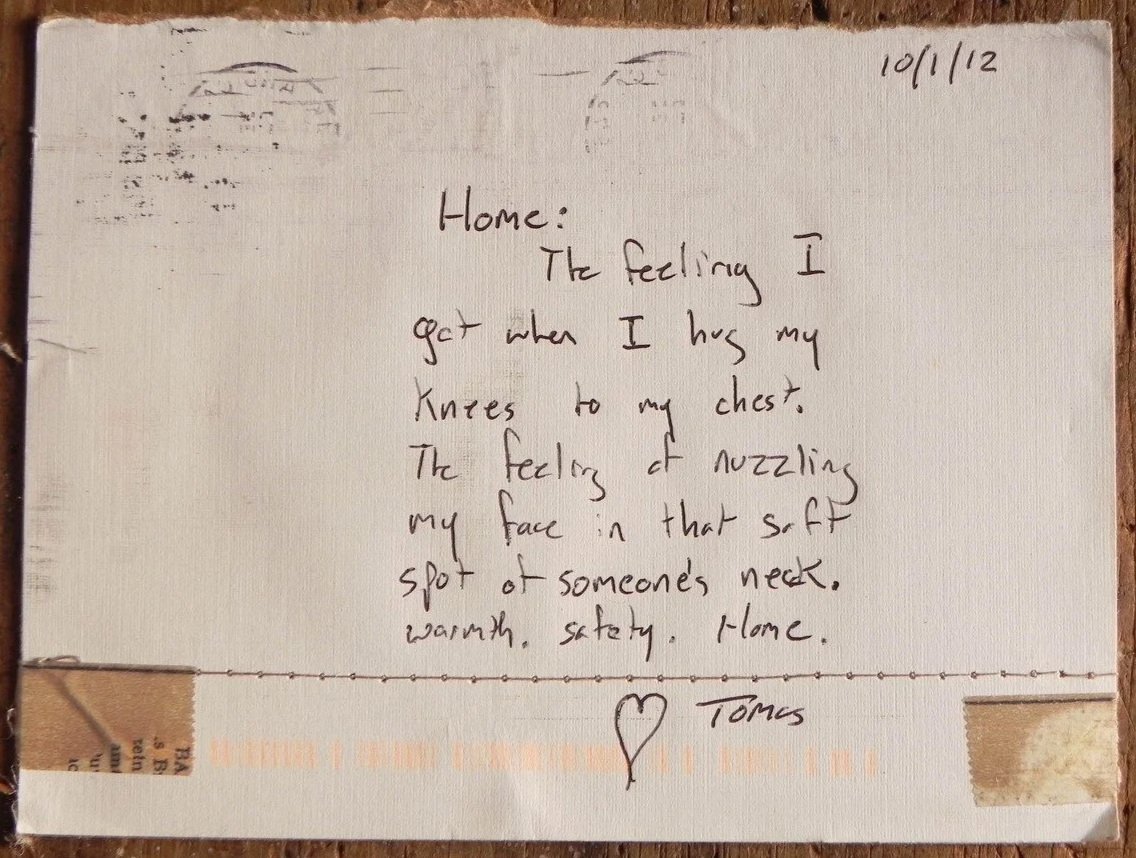 10/1/12
Home:
The feeling I
get when I hug my
knees to my chest.
The feeling of nuzzling
my face in that soft
spot of someone's neck.
warmth. safety. Home.
♡ Tomas
BA
.s B